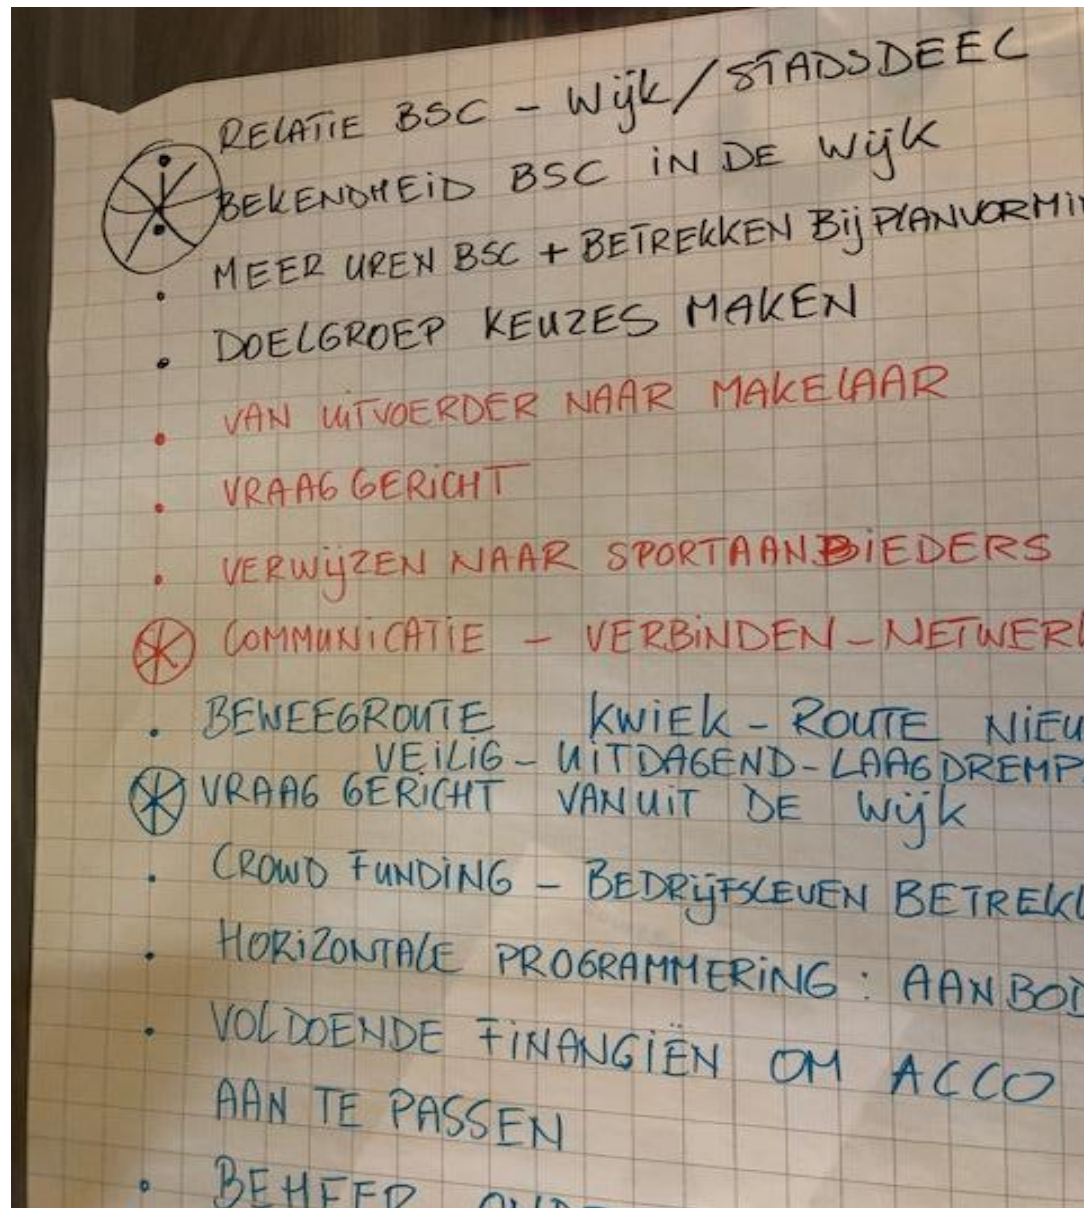 RELATIE BSC - Wijk / STADSDEEL
BEKENDHEID BSC IN DE Wijk
• MEER UREN BSC + BETREKKEN Bij PLANVORMI
• DOELGROEP KEUZES MAKEN
• VAN UITVOERDER NAAR MAKELAAR
• VRAAG GERICHT
• VERWIJZEN NAAR SPORTAANBIEDERS
COMMUNICATIE - VERBINDEN - NETWER
• BEWEEGROUTE KWIEK - ROUTE NIEU
VEILIG - UITDAGEND - LAAGDREMP
VRAAG GERICHT VANUIT DE Wijk
• CROWD FUNDING - BEDRIJFSLEVEN BETREK
• HORIZONTALE PROGRAMMERING : AANBOD
• VOLDOENDE FINANGIËN OM ACCO
AAN TE PASSEN
• BEHEER